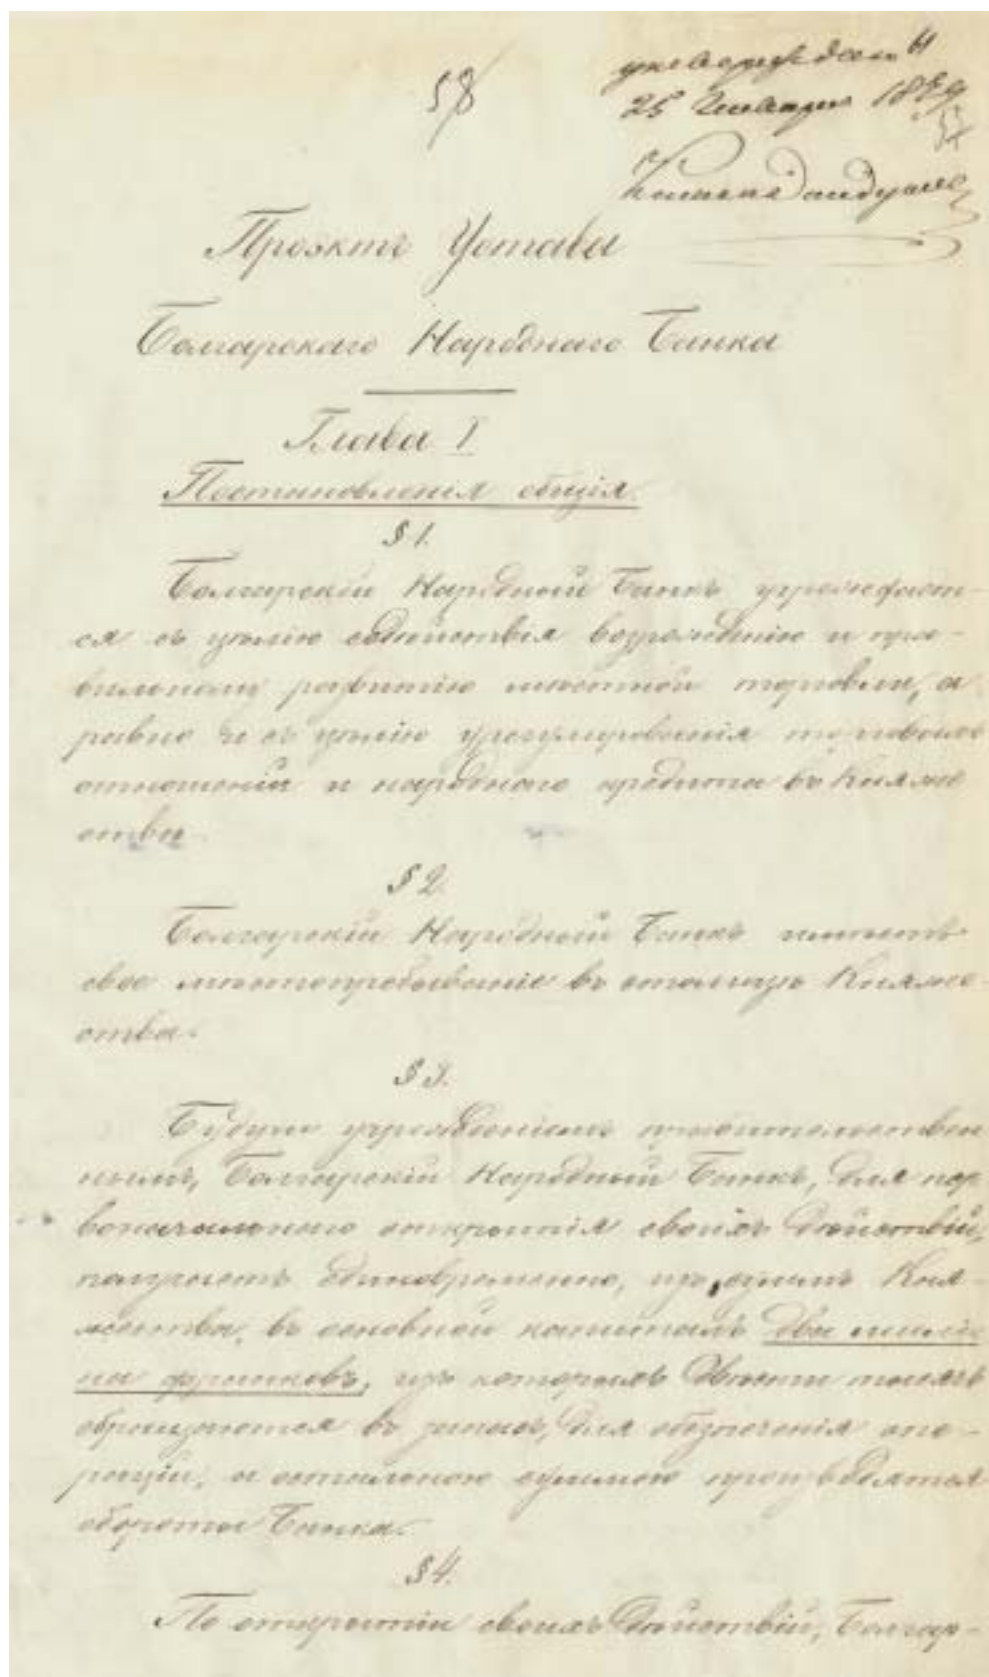 58
утверждаю
25 Января 1879
Князь Дондуков
Проэктъ Устава
Болгарскаго Народнаго Банка
Глава I
Постановленія общія.
§ 1.
Болгарскій Народный Банкъ учреждает-
ся съ цѣлію содѣйствія возрожденію и пра-
вильному развитію мѣстной торговли, а
равно и съ цѣлію урегулированія торговыхъ
отношеній и народнаго кредита въ Княже
ствѣ.
§ 2.
Болгарскій Народный Банкъ имѣетъ
свое мѣстопребываніе въ столицѣ Княже-
ства.
§ 3.
Будучи учрежденіемъ правительствен
нымъ, Болгарскій Народный Банкъ, для пер
воначальнаго открытія своихъ дѣйствій,
получаетъ единовременно, изъ суммъ Кня-
жества, въ основной капиталъ два милліо
на франковъ, изъ которыхъ двѣсти тысячъ
обращаются въ запасъ, для обезпеченія опе-
рацій, а остальною суммою производятся
обороты Банка.
§ 4.
По открытіи своихъ дѣйствій, Болгар-